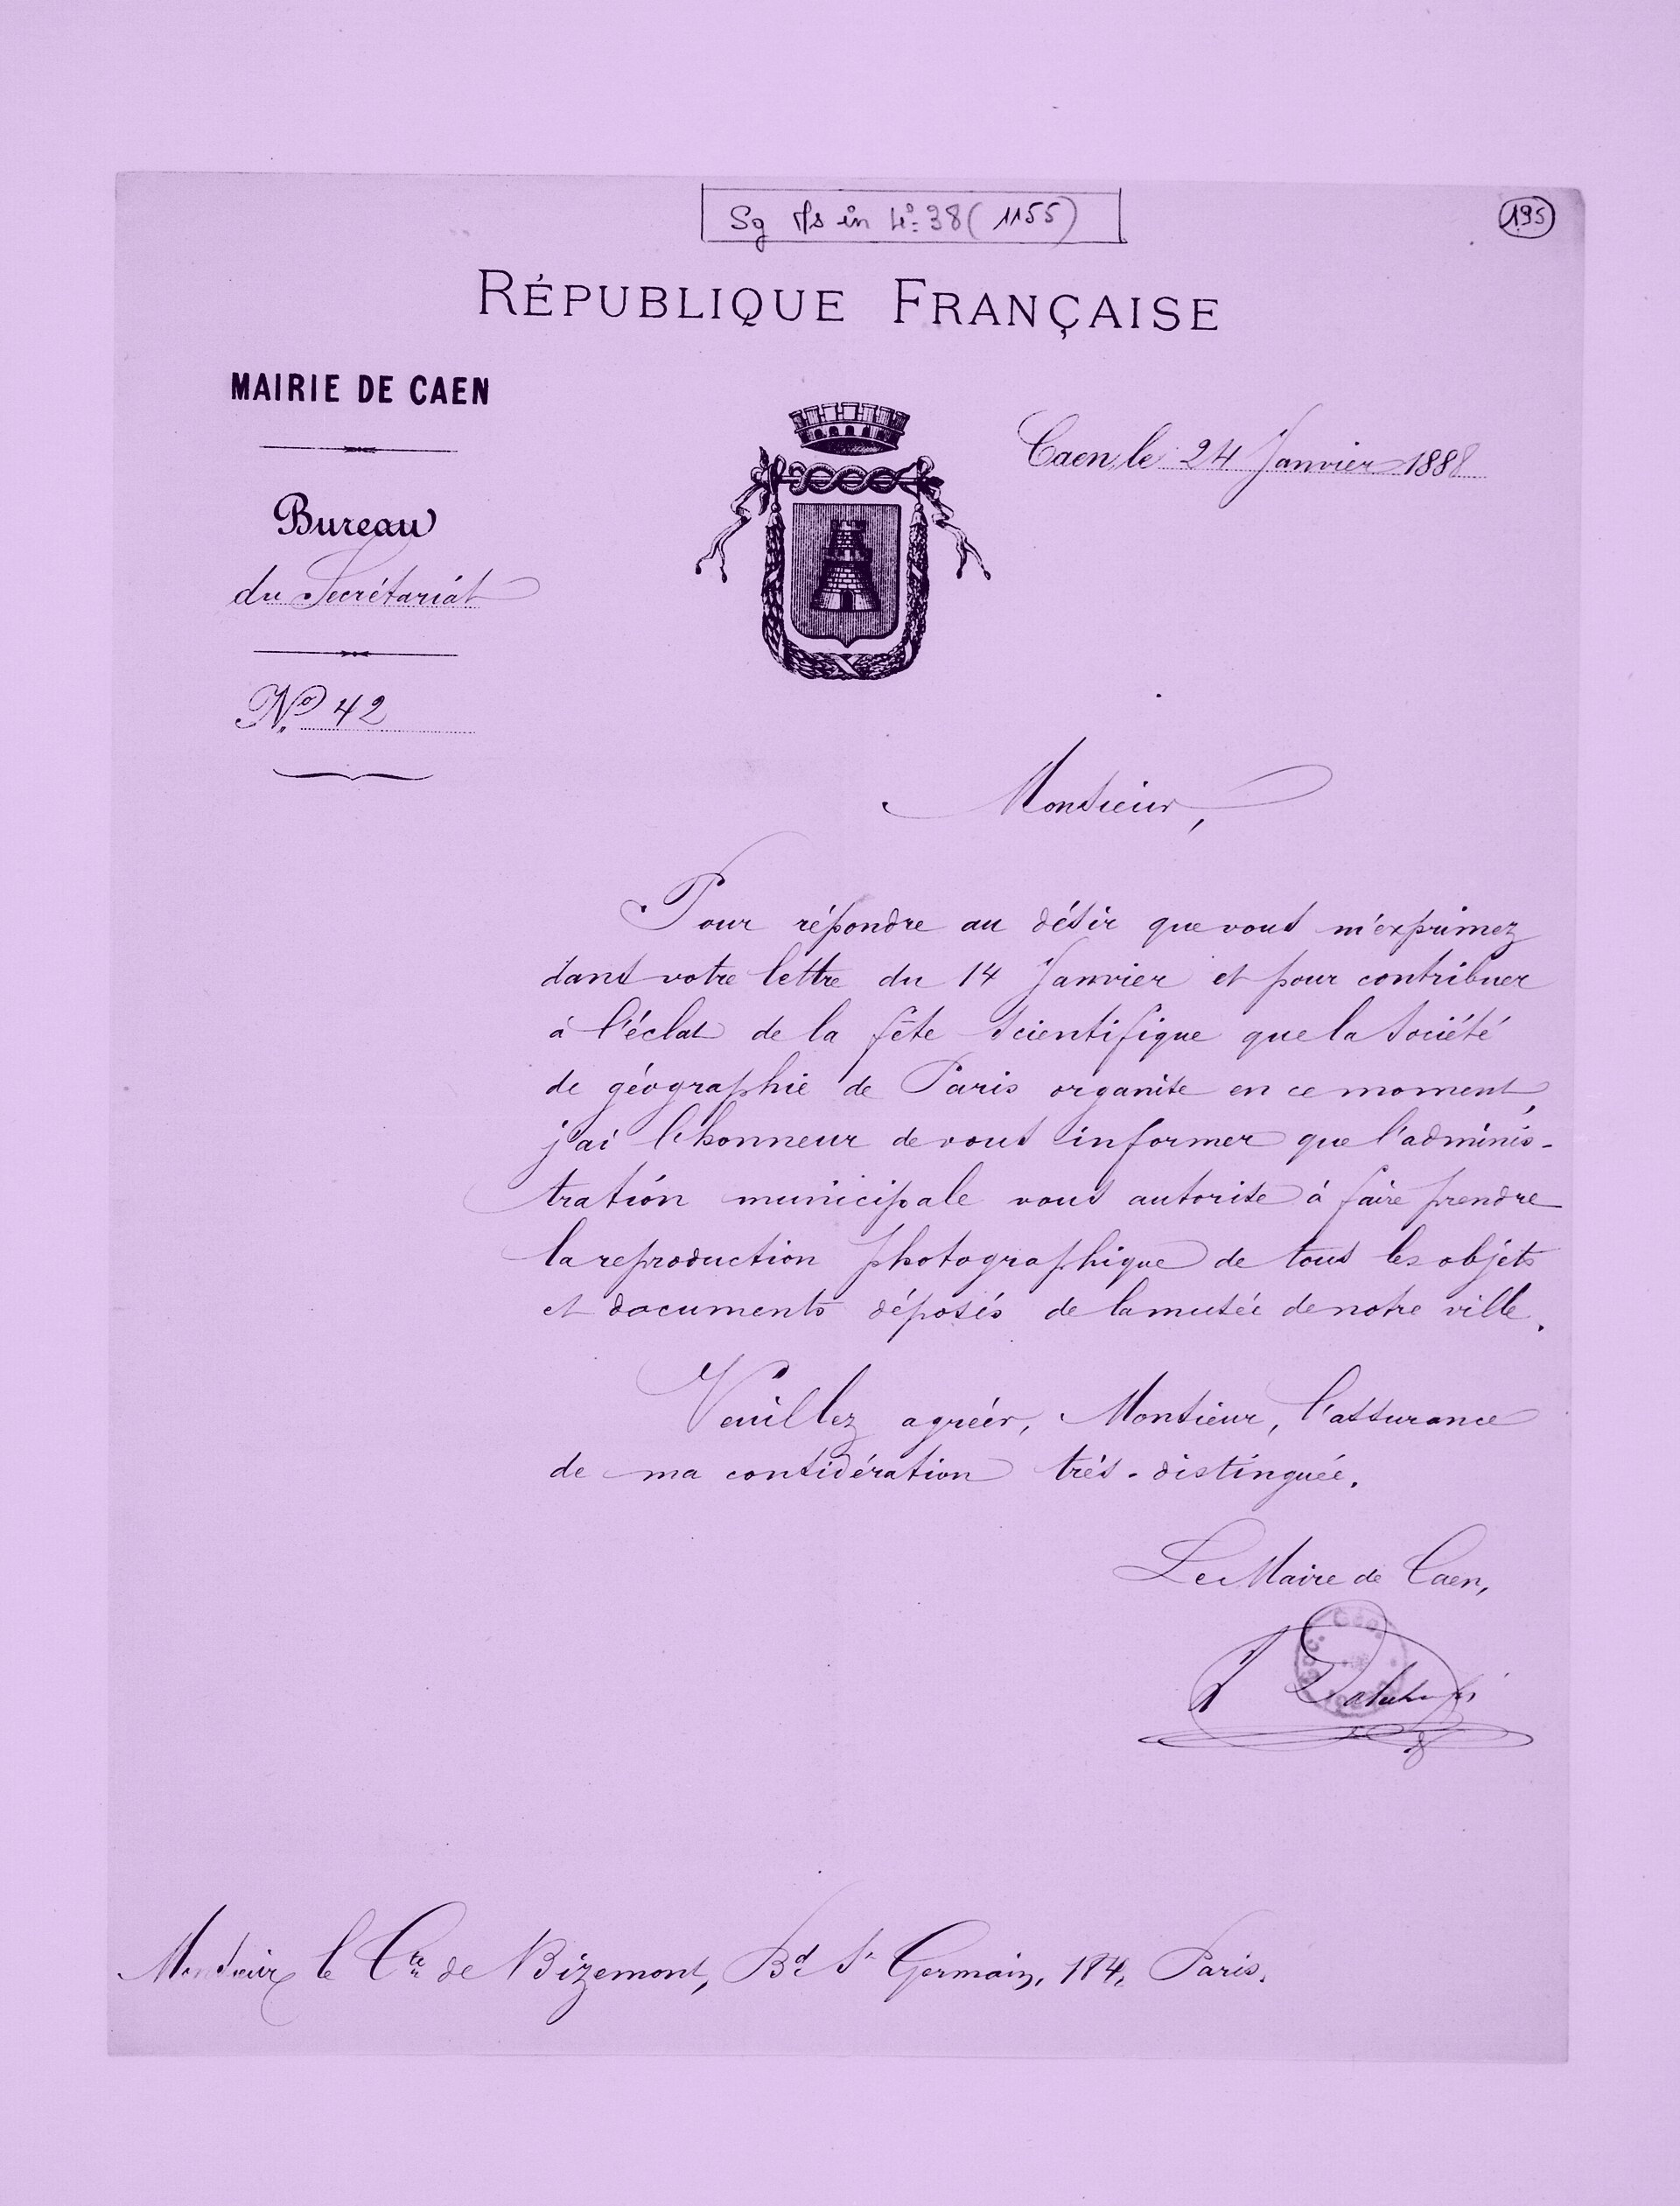 Sg Ms in 4º 38 (1155)
195
RÉPUBLIQUE FRANÇAISE
MAIRIE DE CAEN
Caen, le 24 Janvier 1888
Bureau
du Secrétariat
Nº 42
Monsieur,
Pour répondre au désir que vous m'exprimez
dans votre lettre du 14 Janvier et pour contribuer
à l'éclat de la fête scientifique que la Société
de géographie de Paris organise en ce moment,
j'ai l'honneur de vous informer que l'adminis-
tration municipale vous autorise à faire prendre
la reproduction photographique de tous les objets
et documents déposés de la musée de notre ville.
Veuillez agréer, Monsieur, l'assurance
de ma considération très-distinguée.
Le Maire de Caen,
Monsieur le Cte de Bizemont, Bd St Germain, 184, Paris.